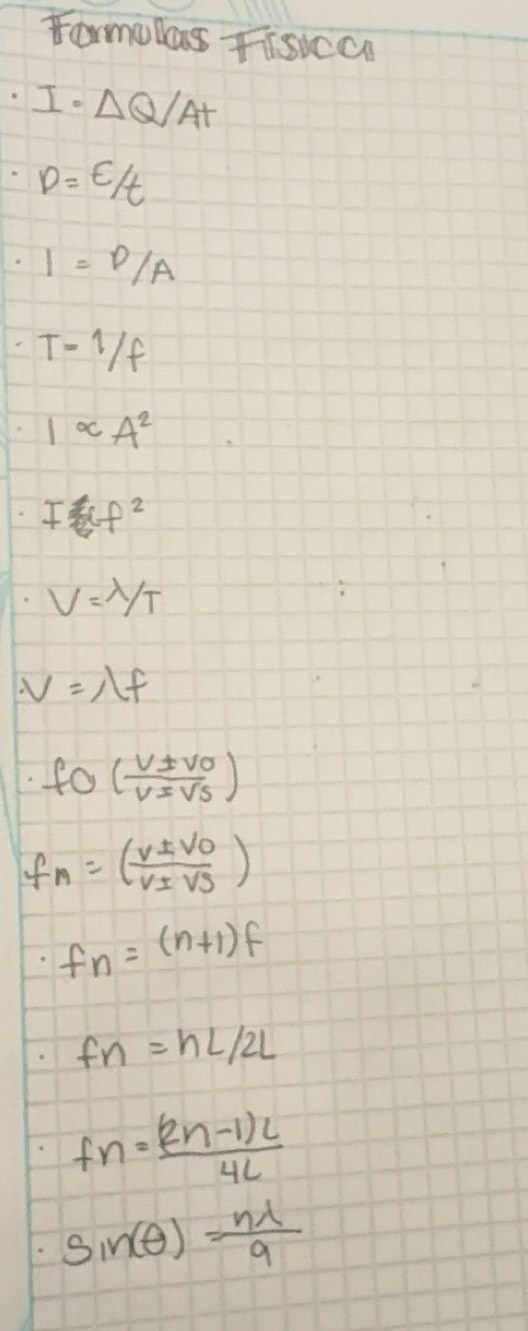 Formulas Fisica
· I = ΔQ/At
· P = E/t
· I = P/A
· T = 1/f
· I ∝ A²
· I f²
· V = λ/T
· V = λf
· fo (v ± vo / v ± vs)
fn = (v ± vo / v ± vs)
· fn = (n+1)f
· fn = nL/2L
· fn = (2n-1)L / 4L
· Sin(θ) = nλ / a